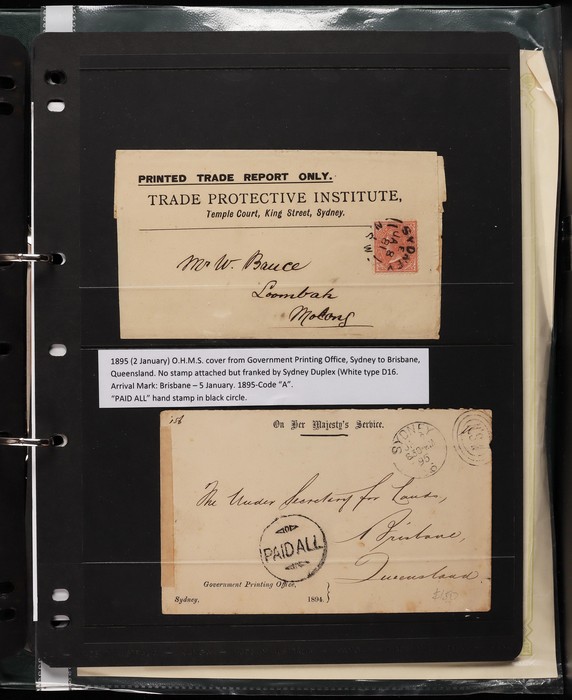 PRINTED TRADE REPORT ONLY.
TRADE PROTECTIVE INSTITUTE,
Temple Court, King Street, Sydney.
SYDNEY
Mr W. Bruce
Loombah
Molong
1895 (2 January) O.H.M.S. cover from Government Printing Office, Sydney to Brisbane,
Queensland. No stamp attached but franked by Sydney Duplex (White type D16.
Arrival Mark: Brisbane – 5 January. 1895-Code "A".
"PAID ALL" hand stamp in black circle.
On Her Majesty's Service.
SYDNEY
95
The Under Secretary for Lands,
Brisbane,
Queensland.
PAID ALL
Government Printing Office,
Sydney. 1894.